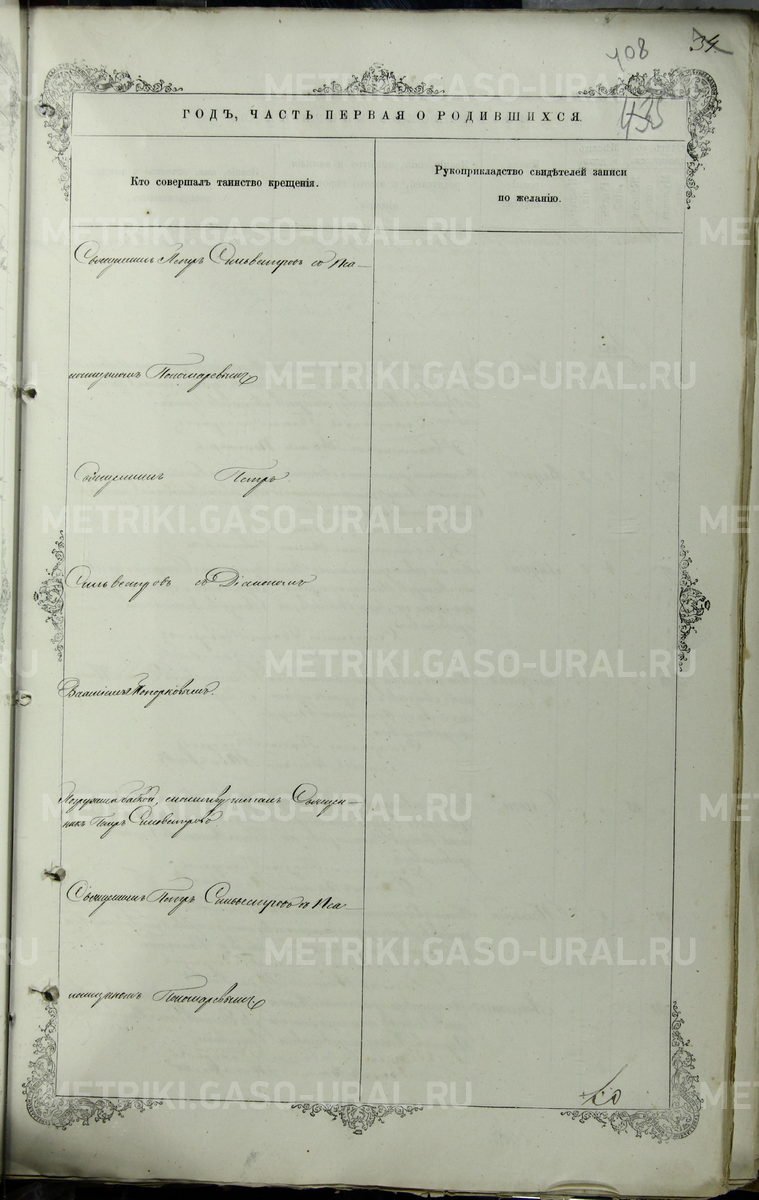 108
34
435
ГОДЪ, ЧАСТЬ ПЕРВАЯ О РОДИВШИХСЯ.
Кто совершалъ таинство крещенія.
Рукоприкладство свидѣтелей записи
по желанію.
Священникъ Петръ Сильвестровъ со Пса-
ломщикомъ Пономаревымъ
Священникъ Петръ
Сильвестровъ съ Діакономъ
Василіемъ Топорковымъ.
Погружена бабкой, молитву читалъ Священ-
никъ Петръ Сильвестровъ
Священникъ Петръ Сильвестровъ со Пса-
ломщикомъ Пономаревымъ
METRIKI.GASO-URAL.RU